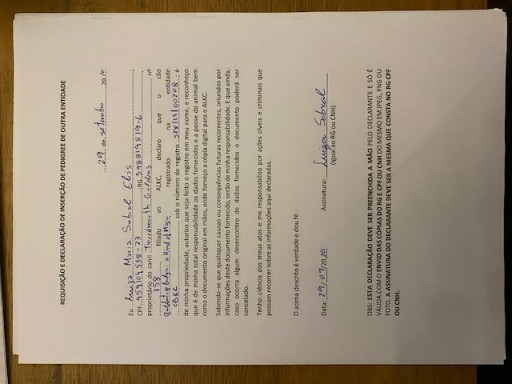 REQUISIÇÃO E DECLARAÇÃO DE INSERÇÃO DE PEDIGREE DE OUTRA ENTIDADE
29, de setembro 2020
Eu Luiza Maria Sobral
CPF RG
proprietário do canil Gardens nº
158 filiado ao ALKC, declaro que o cão
registrado na entidade
CBKC sob o número de registro ; é
de minha propriedade, autorizo que seja feito o registro em meu nome, e reconheço
que é de minha total responsabilidade os dados fornecidos e a posse do animal bem
como o documento original em mãos, onde forneço a cópia digital para o ALKC.
Sabendo-se que quaisquer causas ou consequências futuras recorrentes, oriundos por
informações deste documento fornecido, serão de minha responsabilidade. E que ainda,
caso ocorra algum desencontro de dados fornecidos o documento poderá ser
cancelado.
Tenho ciência dos meus atos e me responsabilizo por ações cíveis e criminais que
possam recorrer sobre as informações aqui declaradas.
O acima descrito é verdade e dou fé
Data: 29/09/2020 Assinatura: Luiza Sobral
(Igual ao RG ou CNH)
OBS: ESTA DECLARAÇÃO DEVE SER PREENCHIDA A MÃO PELO DECLARANTE E SÓ É
VÁLIDA COM O ENVIO DAS CÓPIAS DO RG E CPF OU CNH DO MESMO EM JPEG, PNG OU
FOTO. A ASSINATURA DO DECLARANTE DEVE SER A MESMA QUE CONSTA NO RG CPF
OU CNH.